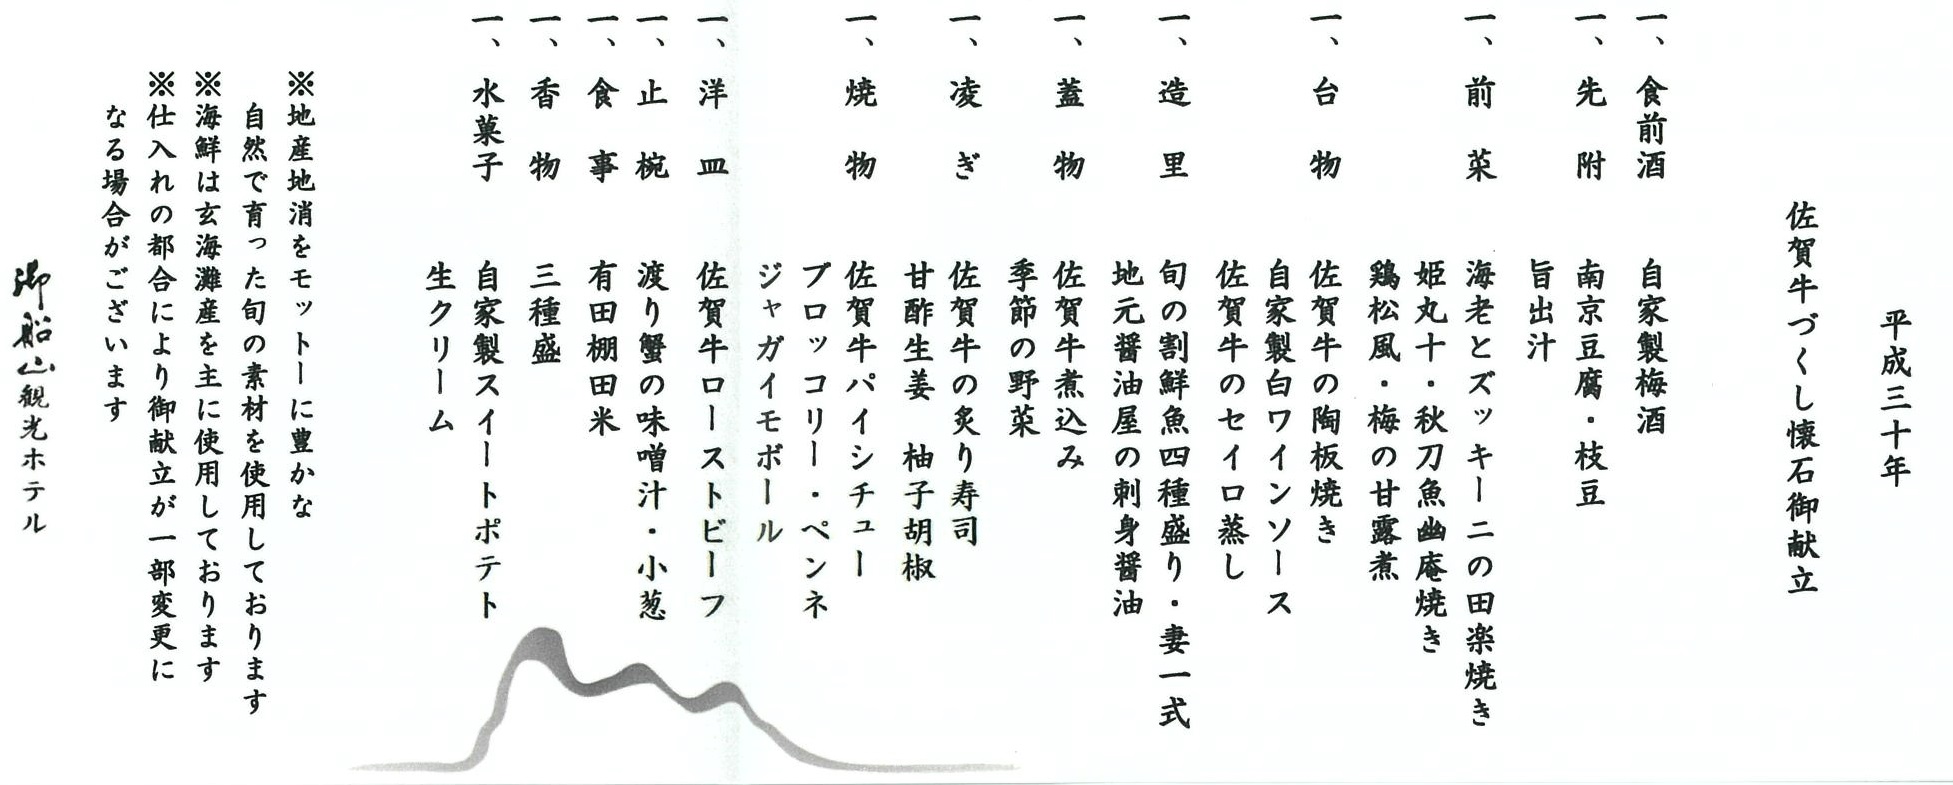 平成三十年
佐賀牛づくし懐石御献立
一、食前酒 自家製梅酒
一、先附 南京豆腐・枝豆
旨出汁
一、前菜 海老とズッキーニの田楽焼き
姫丸十・秋刀魚幽庵焼き
鶏松風・梅の甘露煮
一、台物 佐賀牛の陶板焼き
自家製白ワインソース
佐賀牛のセイロ蒸し
一、造里 旬の割鮮魚四種盛り・妻一式
地元醤油屋の刺身醤油
一、蓋物 佐賀牛煮込み
季節の野菜
一、凌ぎ 佐賀牛の炙り寿司
甘酢生姜 柚子胡椒
一、焼物 佐賀牛パイシチュー
ブロッコリー・ペンネ
ジャガイモボール
一、洋皿 佐賀牛ローストビーフ
一、止椀 渡り蟹の味噌汁・小葱
一、食事 有田棚田米
一、香物 三種盛
一、水菓子 自家製スイートポテト
生クリーム
※地産地消をモットーに豊かな
自然で育った旬の素材を使用しております
※海鮮は玄海灘産を主に使用しております
※仕入れの都合により御献立が一部変更に
なる場合がございます
御船山観光ホテル